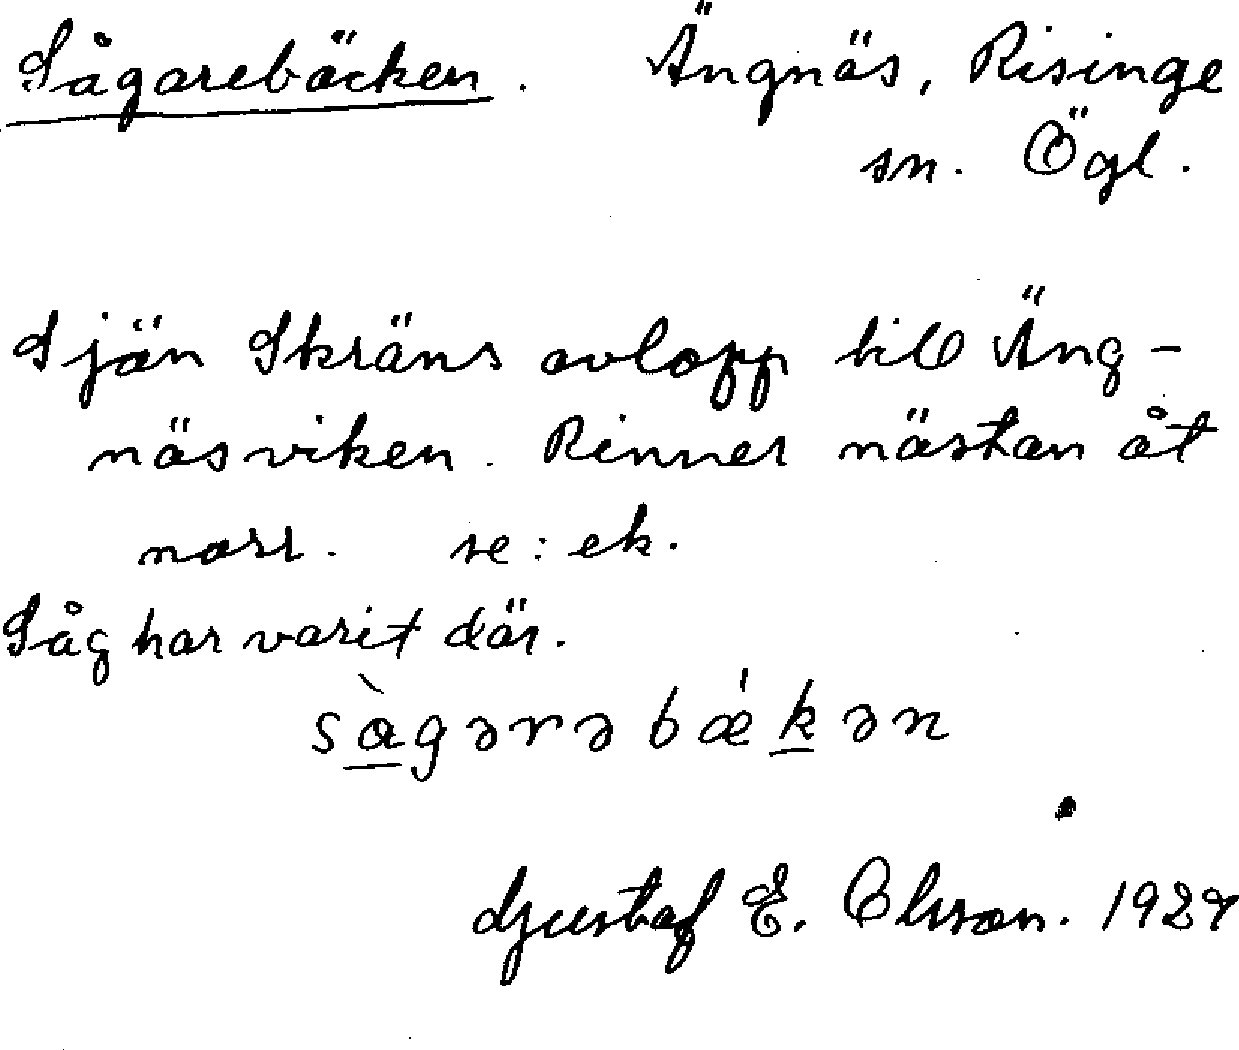 Sågarebäcken. Ängnäs, Risinge
sn. Ögl.
Sjön Skräns avlopp till Äng-
näsviken. Rinner nästan åt
norr. se: ek.
Såg har varit där.
sàgərəbǽkən
Gustaf E. Olsson. 1927